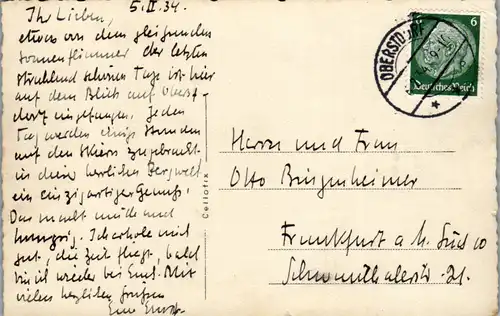 5.II.34.
Ihr Lieben,
etwas von dem gleißenden
Sonnenflimmer der letzten
strahlend schönen Tage ist hier
auf dem Blick auf Oberst-
dorf eingefangen. Jeden
Tag werden einige Stunden
auf den Skiern zugebracht
in dieser herrlichen Bergwelt
ein einzigartiger Genuß.
Das macht müde und
hungrig. Ich erhole mich
gut, die Zeit fliegt, bald
bin ich wieder bei Euch. Mit
vielen herzlichen Grüßen
Eure
Cellofix
OBERSTDORF
6
Deutsches Reich
Herrn und Frau
Otto Bingenheimer
Frankfurt a. M. Süd 10
Schwanthalerstr.